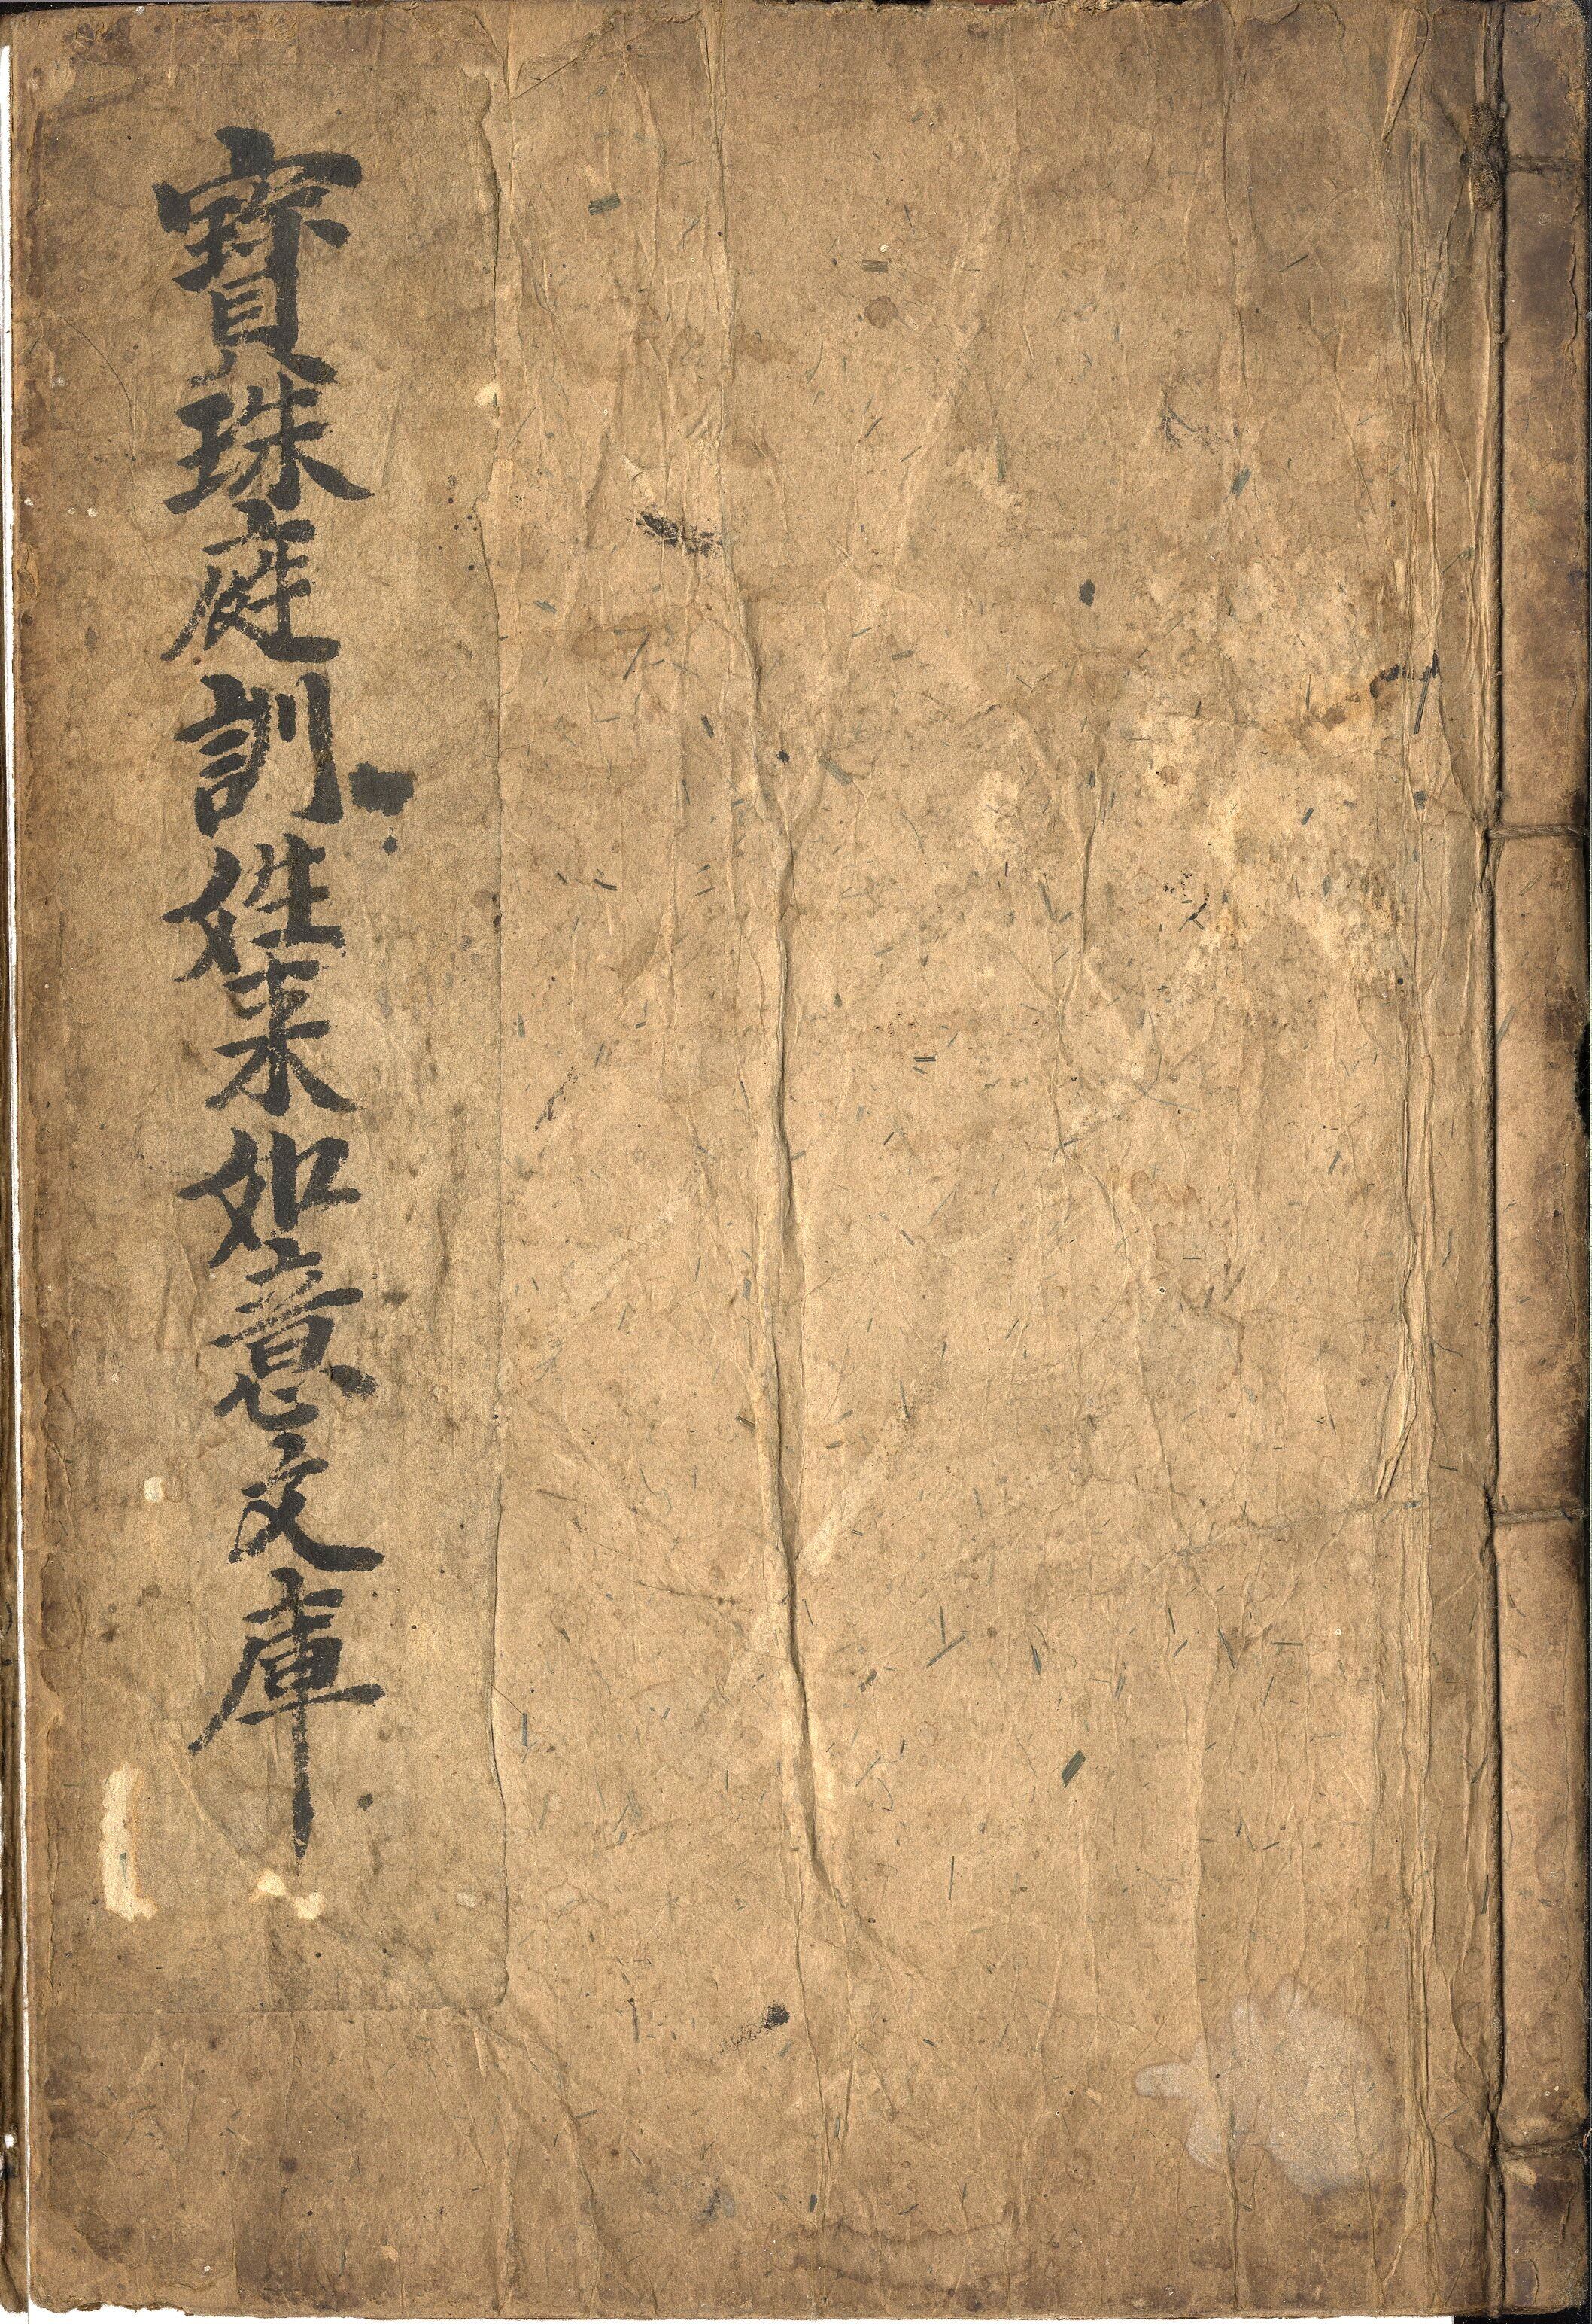 寳珠庭訓姓来如意文庫